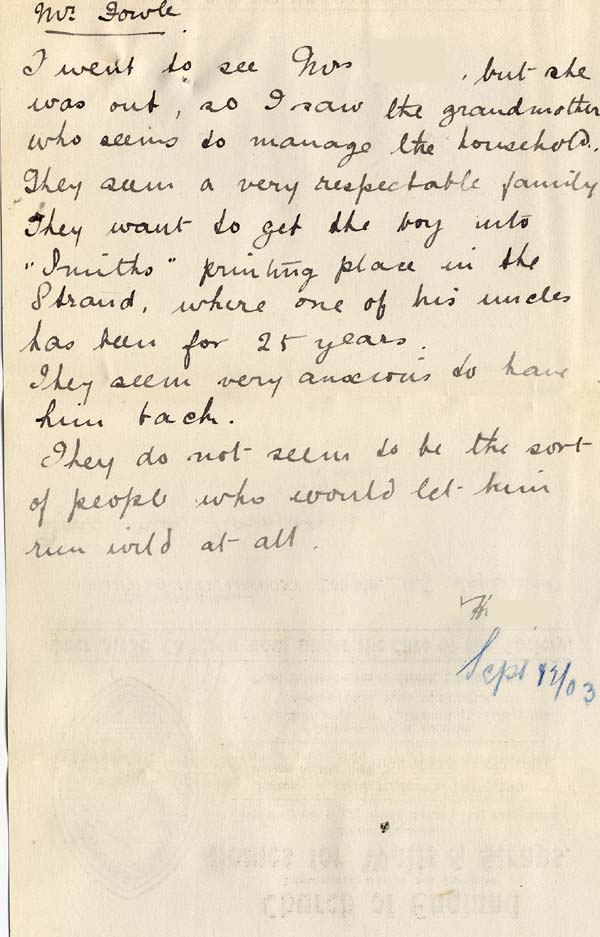 Mr. Fowle.
I went to see Mrs , but she
was out, so I saw the grandmother
who seems to manage the household.
They seem a very respectable family
They want to get the boy into
"Smiths" printing place in the
Strand, where one of his uncles
has been for 25 years.
They seem very anxious to have
him back.
They do not seem to be the sort
of people who would let him
run wild at all.
H
Sept /03
Homes for Waifs & Strays.
Church of England